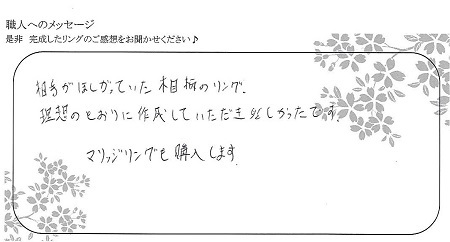 職人へのメッセージ
是非 完成したリングのご感想をお聞かせください♪
相手がほしがっていた桜柄のリング。
理想のとおりに作成していただき嬉しかったです。
マリッジリングも購入します